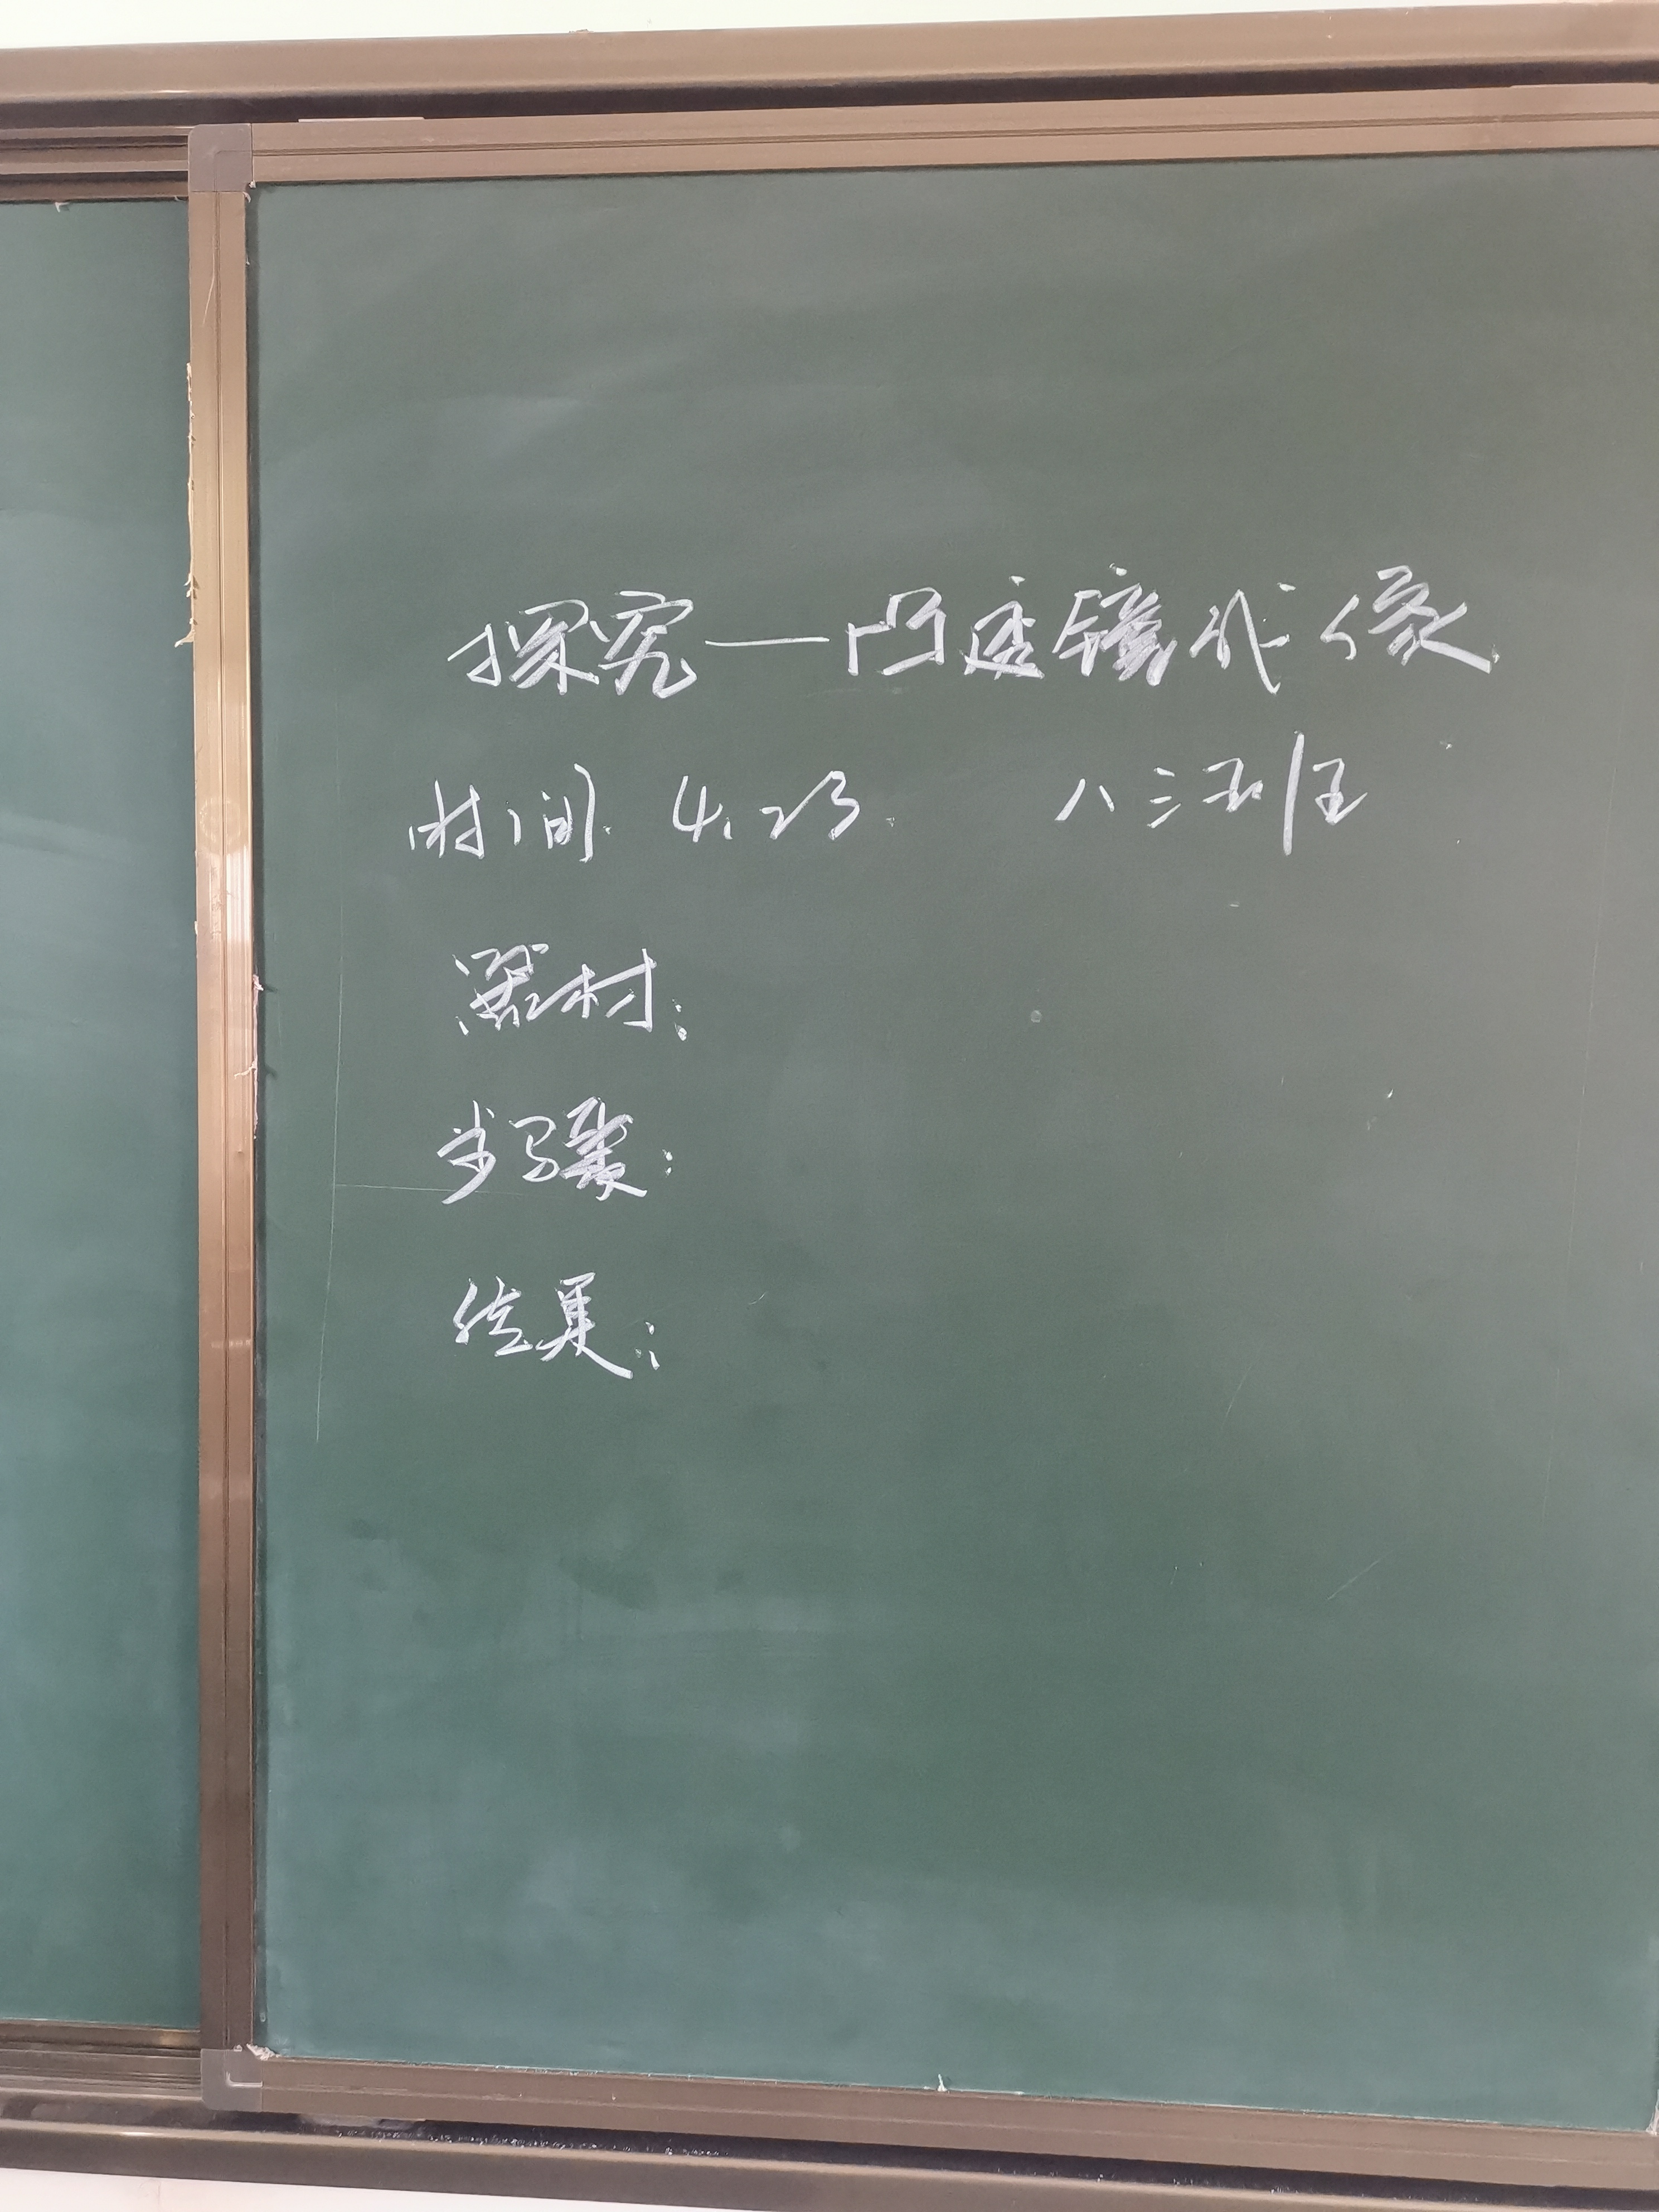 探究—凸透镜成像
时间 4.23 八三班
器材:
步骤:
结果: